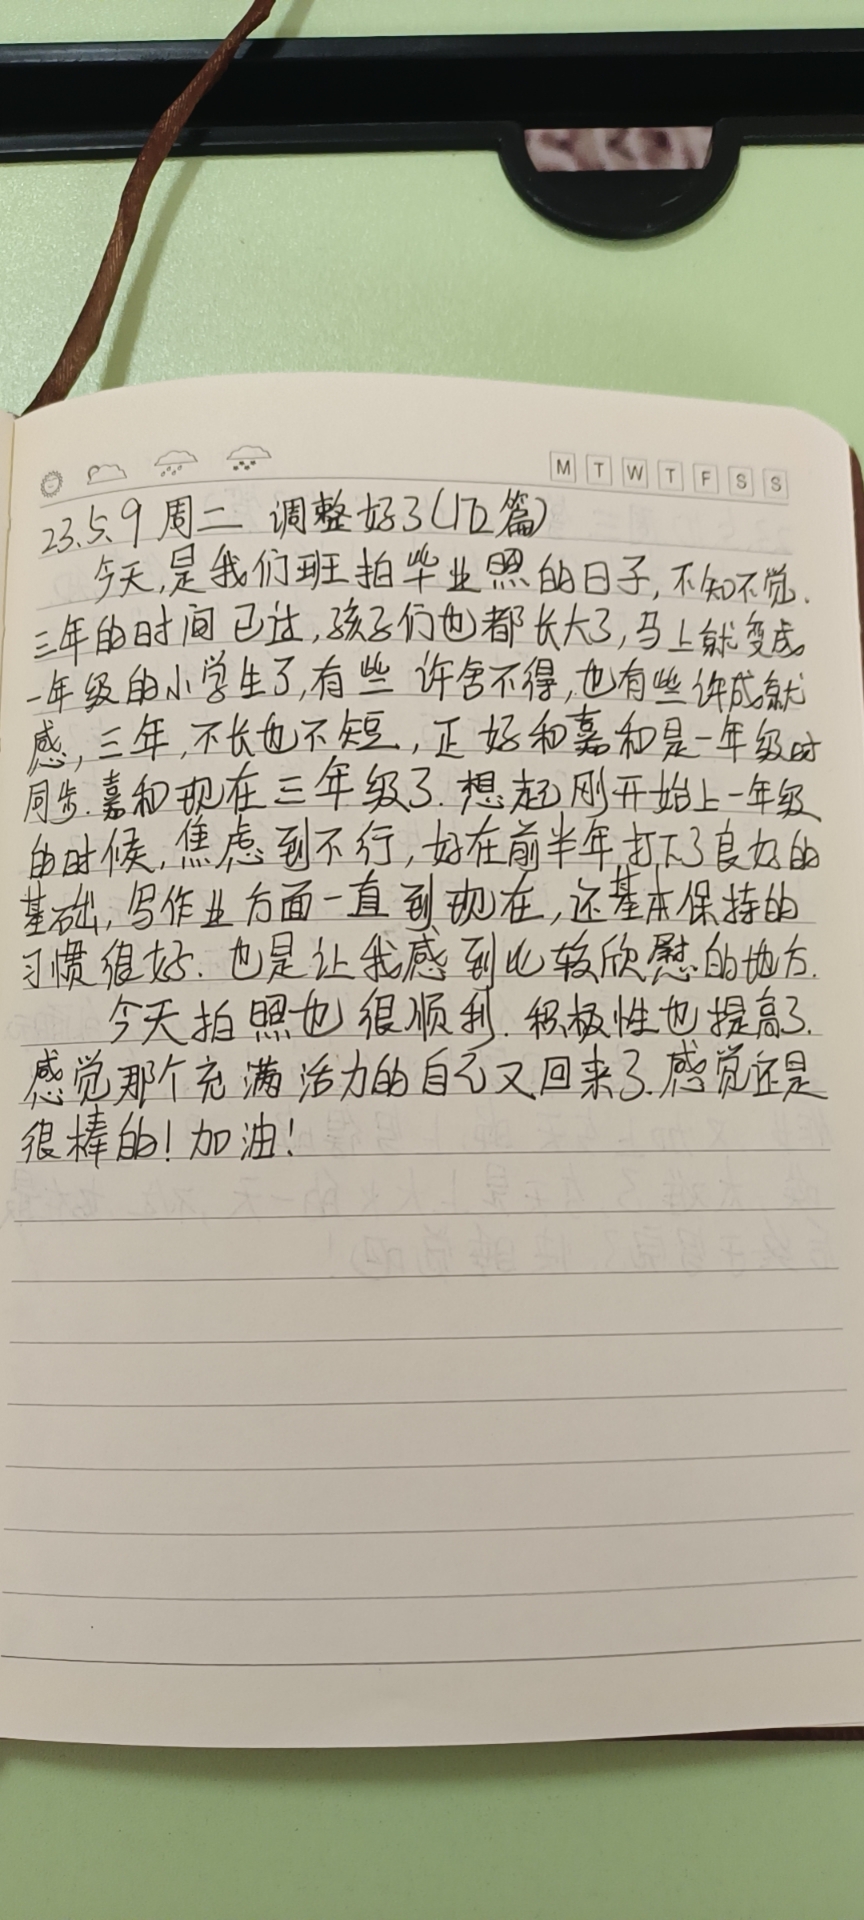 M T W T F S S
23.5.9 周二 调整好了(172篇)
今天,是我们班拍毕业照的日子,不知不觉.
三年的时间已过,孩子们也都长大了,马上就变成
一年级的小学生了,有些许舍不得,也有些许成就
感,三年,不长也不短,正好和嘉和是一年级时
同步.嘉和现在三年级了.想起刚开始上一年级
的时候,焦虑到不行,好在前半年打下了良好的
基础,写作业方面一直到现在,还基本保持的
习惯很好.也是让我感到比较欣慰的地方.
今天拍照也很顺利.积极性也提高了.
感觉那个充满活力的自己又回来了.感觉还是
很棒的!加油!